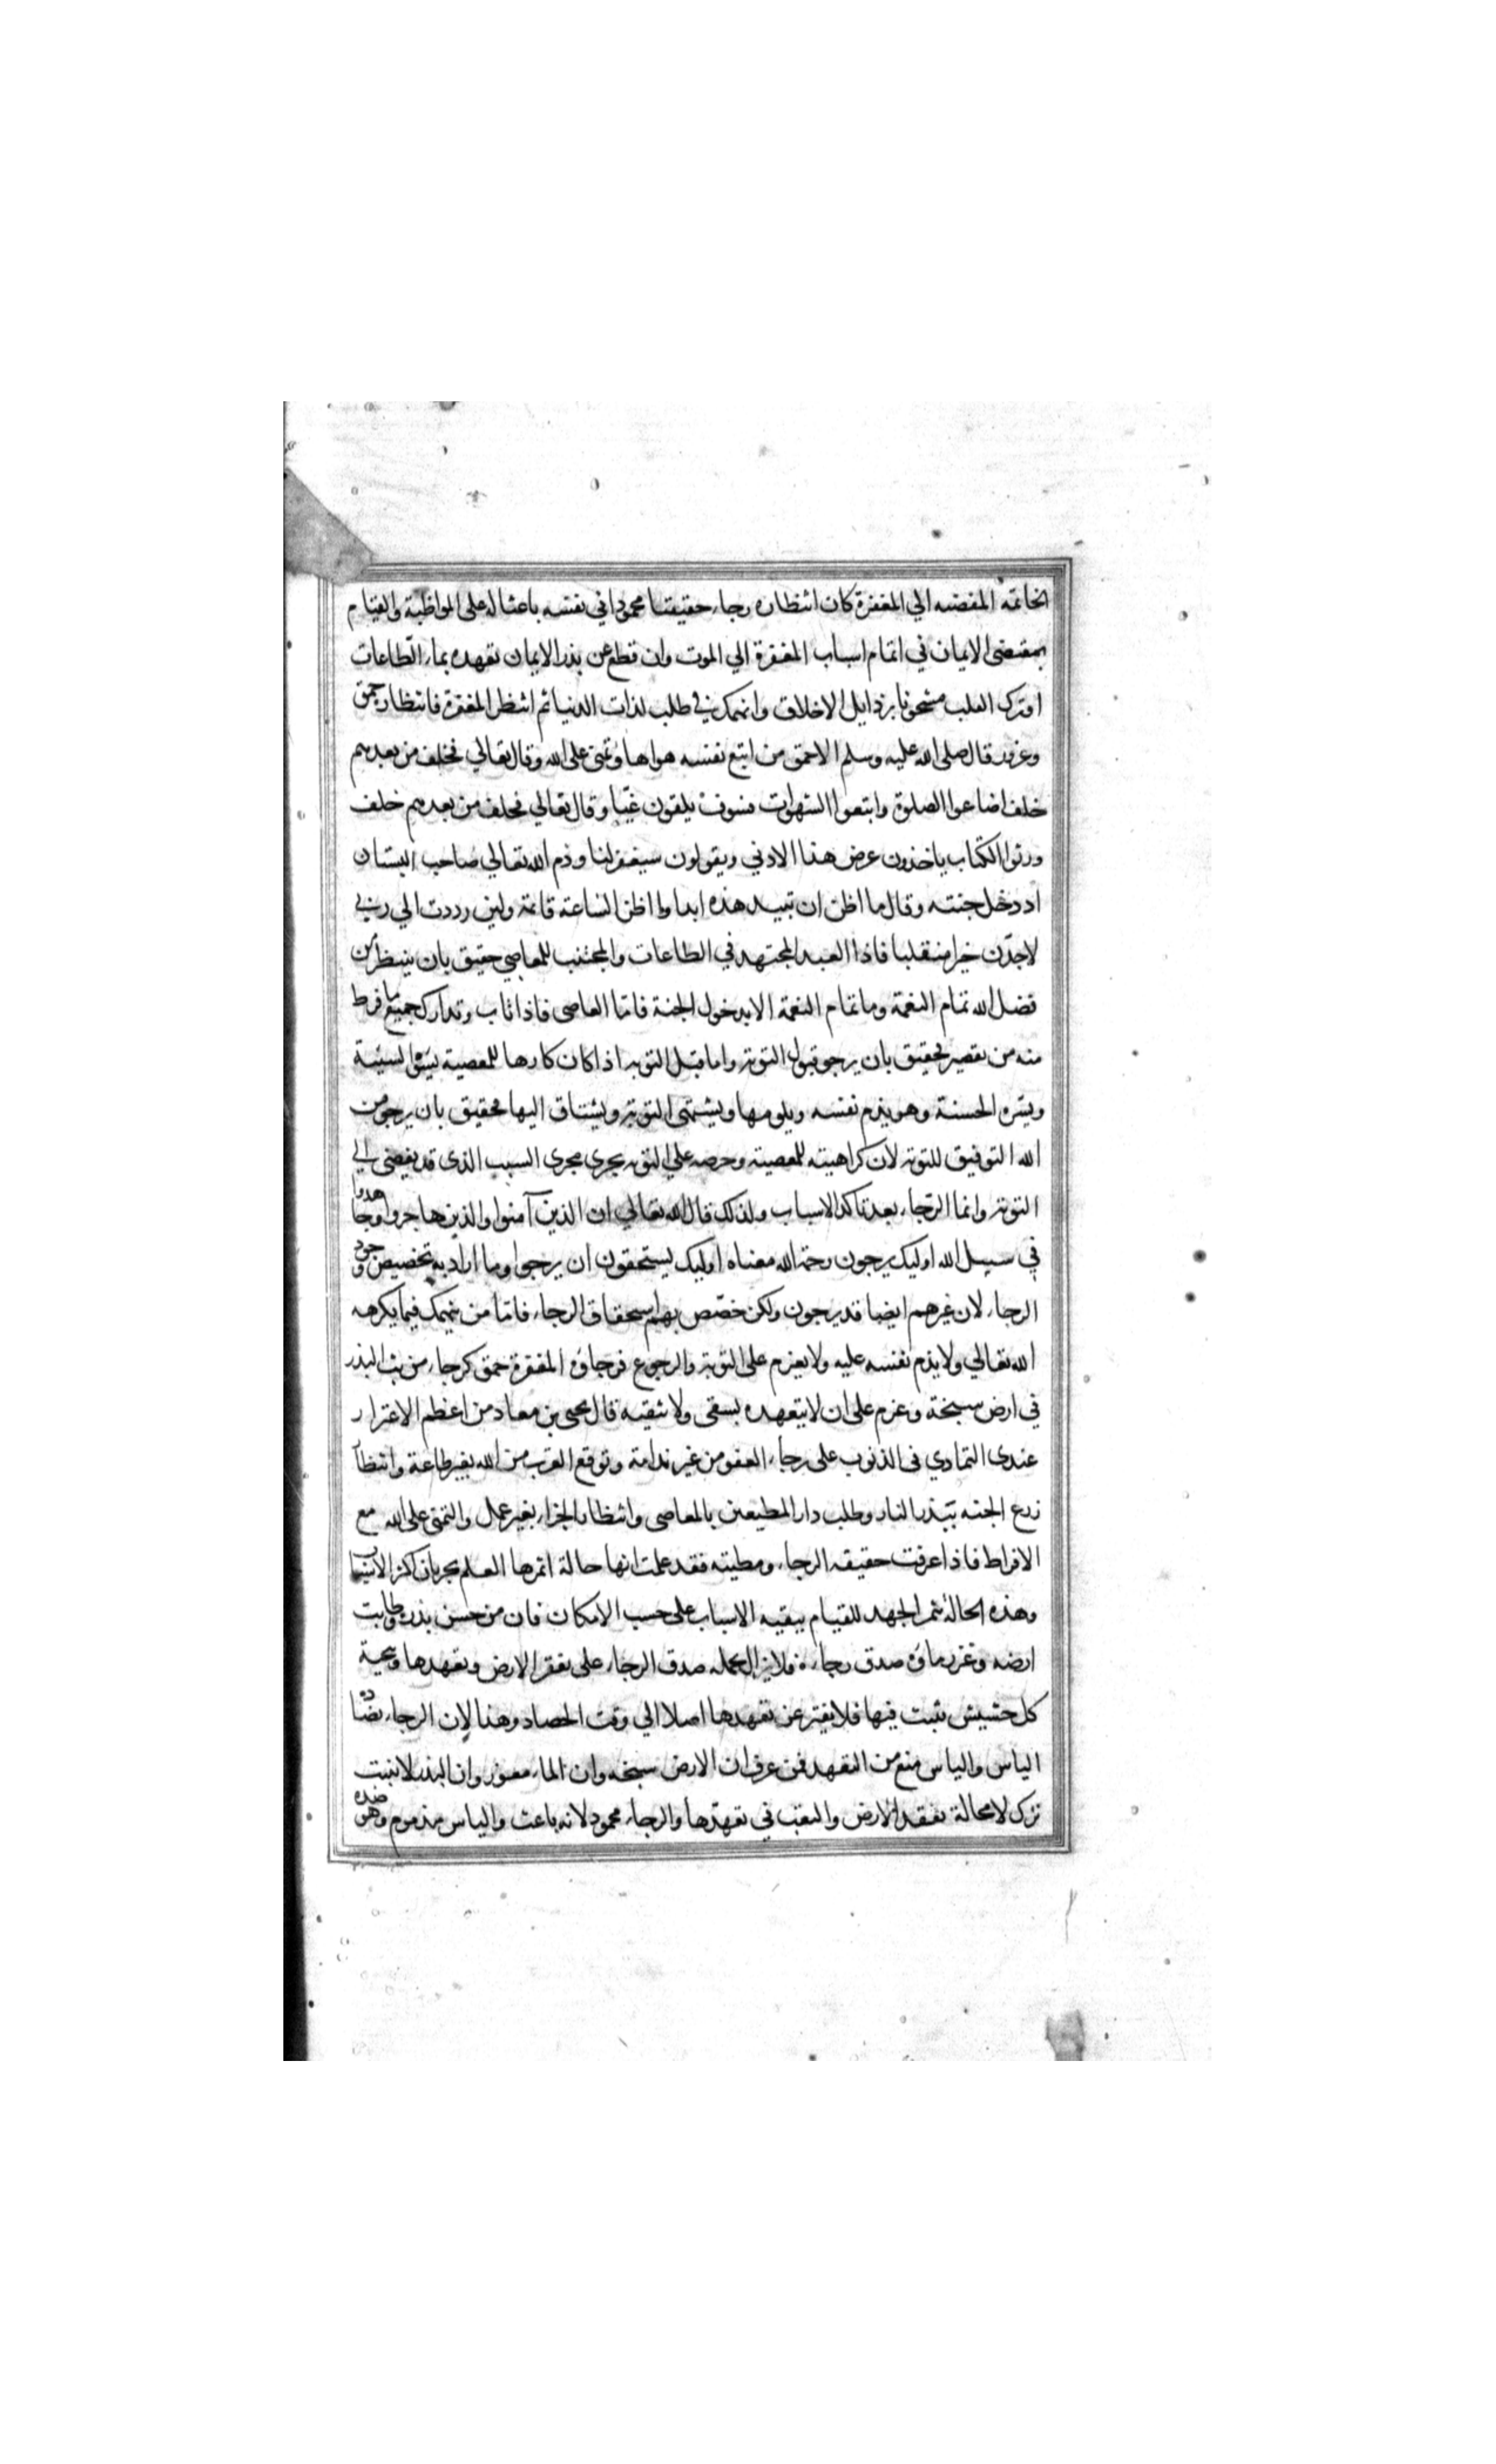 الخاتمة المفضيه الي المغفرة كان انتظاره رجاء حقيقيا محمودا في نفسه باعثا له على المواظبة والقيام
بمقتضى الايمان في اتمام اسباب المغفرة الي الموت وان قطع عن بذر الايمان تعهده بماء الطاعات
او ترك القلب مشحونا برذايل الاخلاق وانهمك في طلب لذات الدنيا ثم انتظر المغفرة فانتظاره حمق
وغرور قال صلى الله عليه وسلم الاحمق من اتبع نفسه هواها وتمنى على الله وقال تعالي فخلف من بعدهم
خلف اضاعوا الصلوة واتبعوا الشهوات فسوف يلقون غيّا وقال تعالي فخلف من بعدهم خلف
ورثوا الكتاب ياخذون عرض هذا الادني ويقولون سيغفر لنا وذم الله تعالي صاحب البستان
اذ دخل جنته وقال ما اظن ان تبيد هذه ابدا وما اظن الساعة قائمة ولين رددت الي ربي
لاجدّن خيرا منقلبا فاذا العبد المجتهد في الطاعات والمجتنب للمعاصي حقيق بان ينتظر من
فضل الله تمام النعمة وما تمام النعمة الا بدخول الجنة فامّا العاصى فاذا تاب وتدارك جميع ما فرط
منه من تقصير فحقيق بان يرجو قبول التوبة واما قبل التوبه اذا كان كارها للمعصية يسوه السيئة
ويسّره الحسنة وهو يذم نفسه ويلومها ويشتهى التوبة ويشتاق اليها فحقيق بان يرجو من
الله التوفيق للتوبة لان كراهيته للمعصية وحرصه علي التوبه يجرى مجرى السبب الذى قد يفضى الي
التوبة وانما الرّجاء بعد تاكد الاسباب ولذلك قال الله تعالي ان الذين آمنوا والذين هاجروا وجاهدوا
في سبيل الله اوليك يرجون رحمة الله معناه اوليك يستحقون ان يرجوا وما اراد به تخصيص وجود
الرجاء لان غيرهم ايضا قد يرجون ولكن خصّص بهم استحقاق الرجاء فامّا من ينهمك فيما يكرهه
الله تعالي ولا يذم نفسه عليه ولا يعزم على التوبة والرجوع فرجاؤه المغفرة حمق كرجاء من بث البذر
في ارض سبخة وعزم على ان لا يتعهده بسقى ولا تنقيه قال يحيى بن معاد من اعظم الاغترار
عندى التمادي فى الذنوب على رجاء العفو من غير ندامة وتوقع القرب من الله بغير طاعة وانتظار
زرع الجنه ببذر النار وطلب دار المطيعين بالمعاصى وانتظار الجزاء بغير عمل والتمنى على الله مع
الافراط فاذا عرفت حقيقه الرجاء ومطيته فقد علمت انها حالة اثمرها العلم بجريان اكثر الاسباب
وهذه الحالة تثمر الجهد للقيام ببقيه الاسباب على حسب الامكان فان من حسن بذره وطابت
ارضه وغزر ماؤه صدق رجاءه فلا يزال يحمله صدق الرجاء على تفقد الارض وتعهدها وتنحية
كل حشيش ينبت فيها فلا يفتر عن تعهدها اصلا الي وقت الحصاد وهذا لان الرجاء يضاده
الياس والياس منع من التعهد فمن عرف ان الارض سبخه وان الماء معوز وان البذر لا ينبت
ترك لا محالة تفقد الارض والتعب في تعهدّها والرجاء محمود لانه باعث والياس مذموم وهو ضده